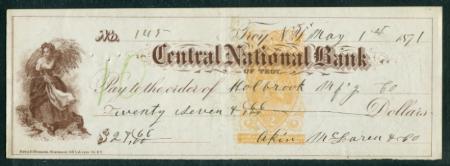 No. 145 Troy, N.Y. May 1st 1871
Central National Bank
OF TROY,
Pay to the order of Holbrook Mf'g Co
Twenty Seven & 66/100 Dollars
$27 66/100 Akin McLaren & Co